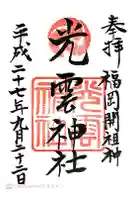 奉拝
福岡開祖神
光雲神社
平成二十七年九月二十二日